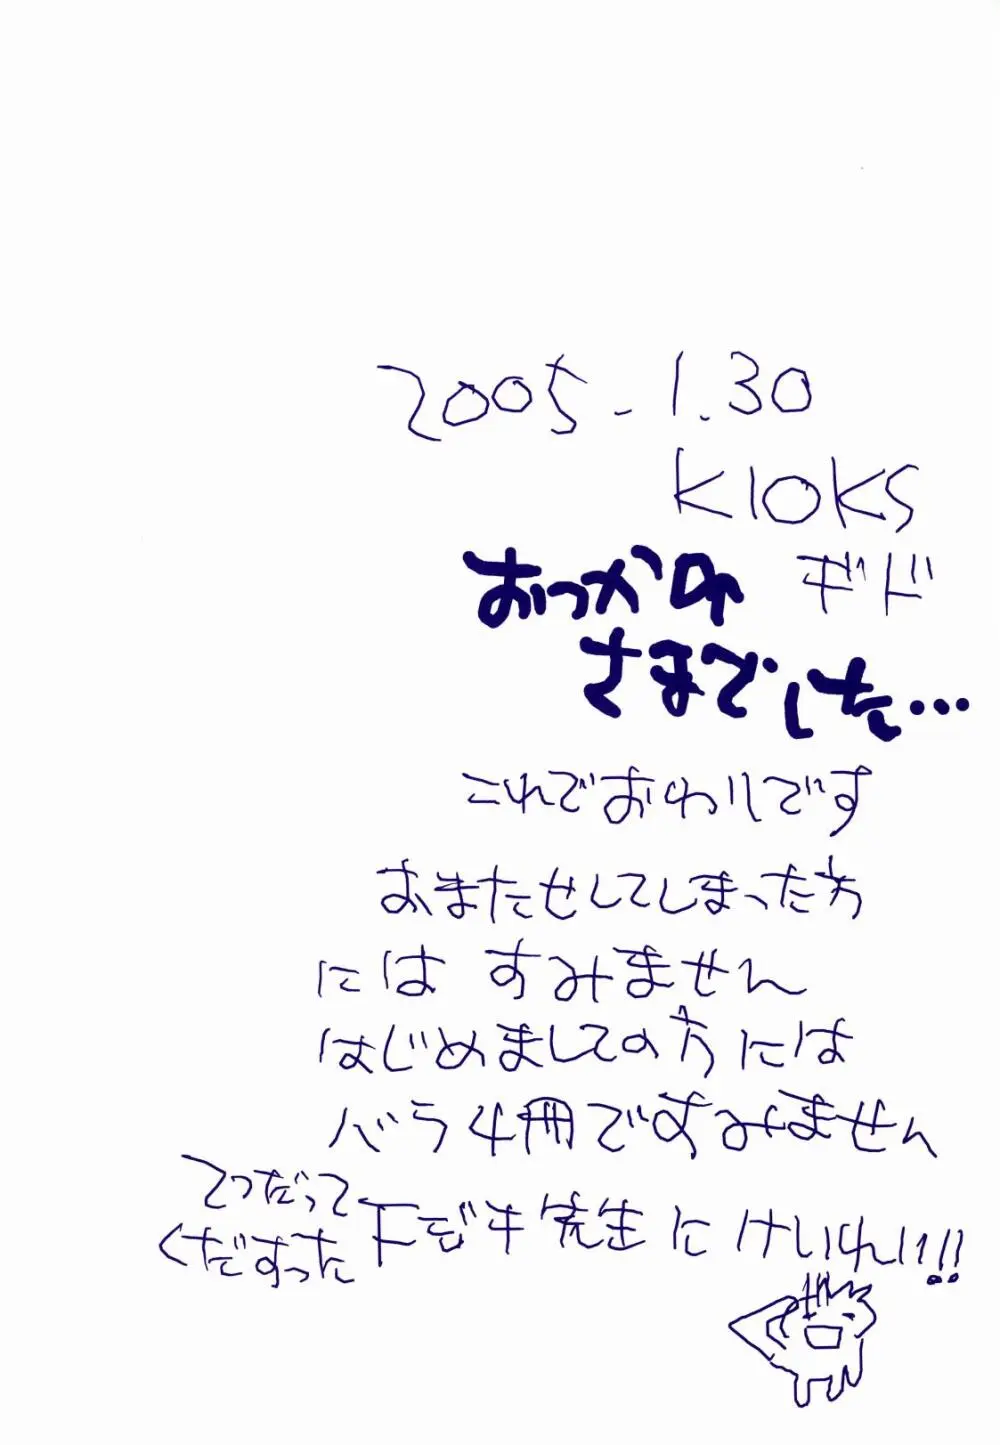 2005.1.30
KIOKS
ギド
おっかれ
さまでした…
これでおわりです
おまたせしてしまった方
には すみません
はじめましての方には
バラ4冊ですみません
てつだって
くだすった
下モヂキ先生にけいれい!!